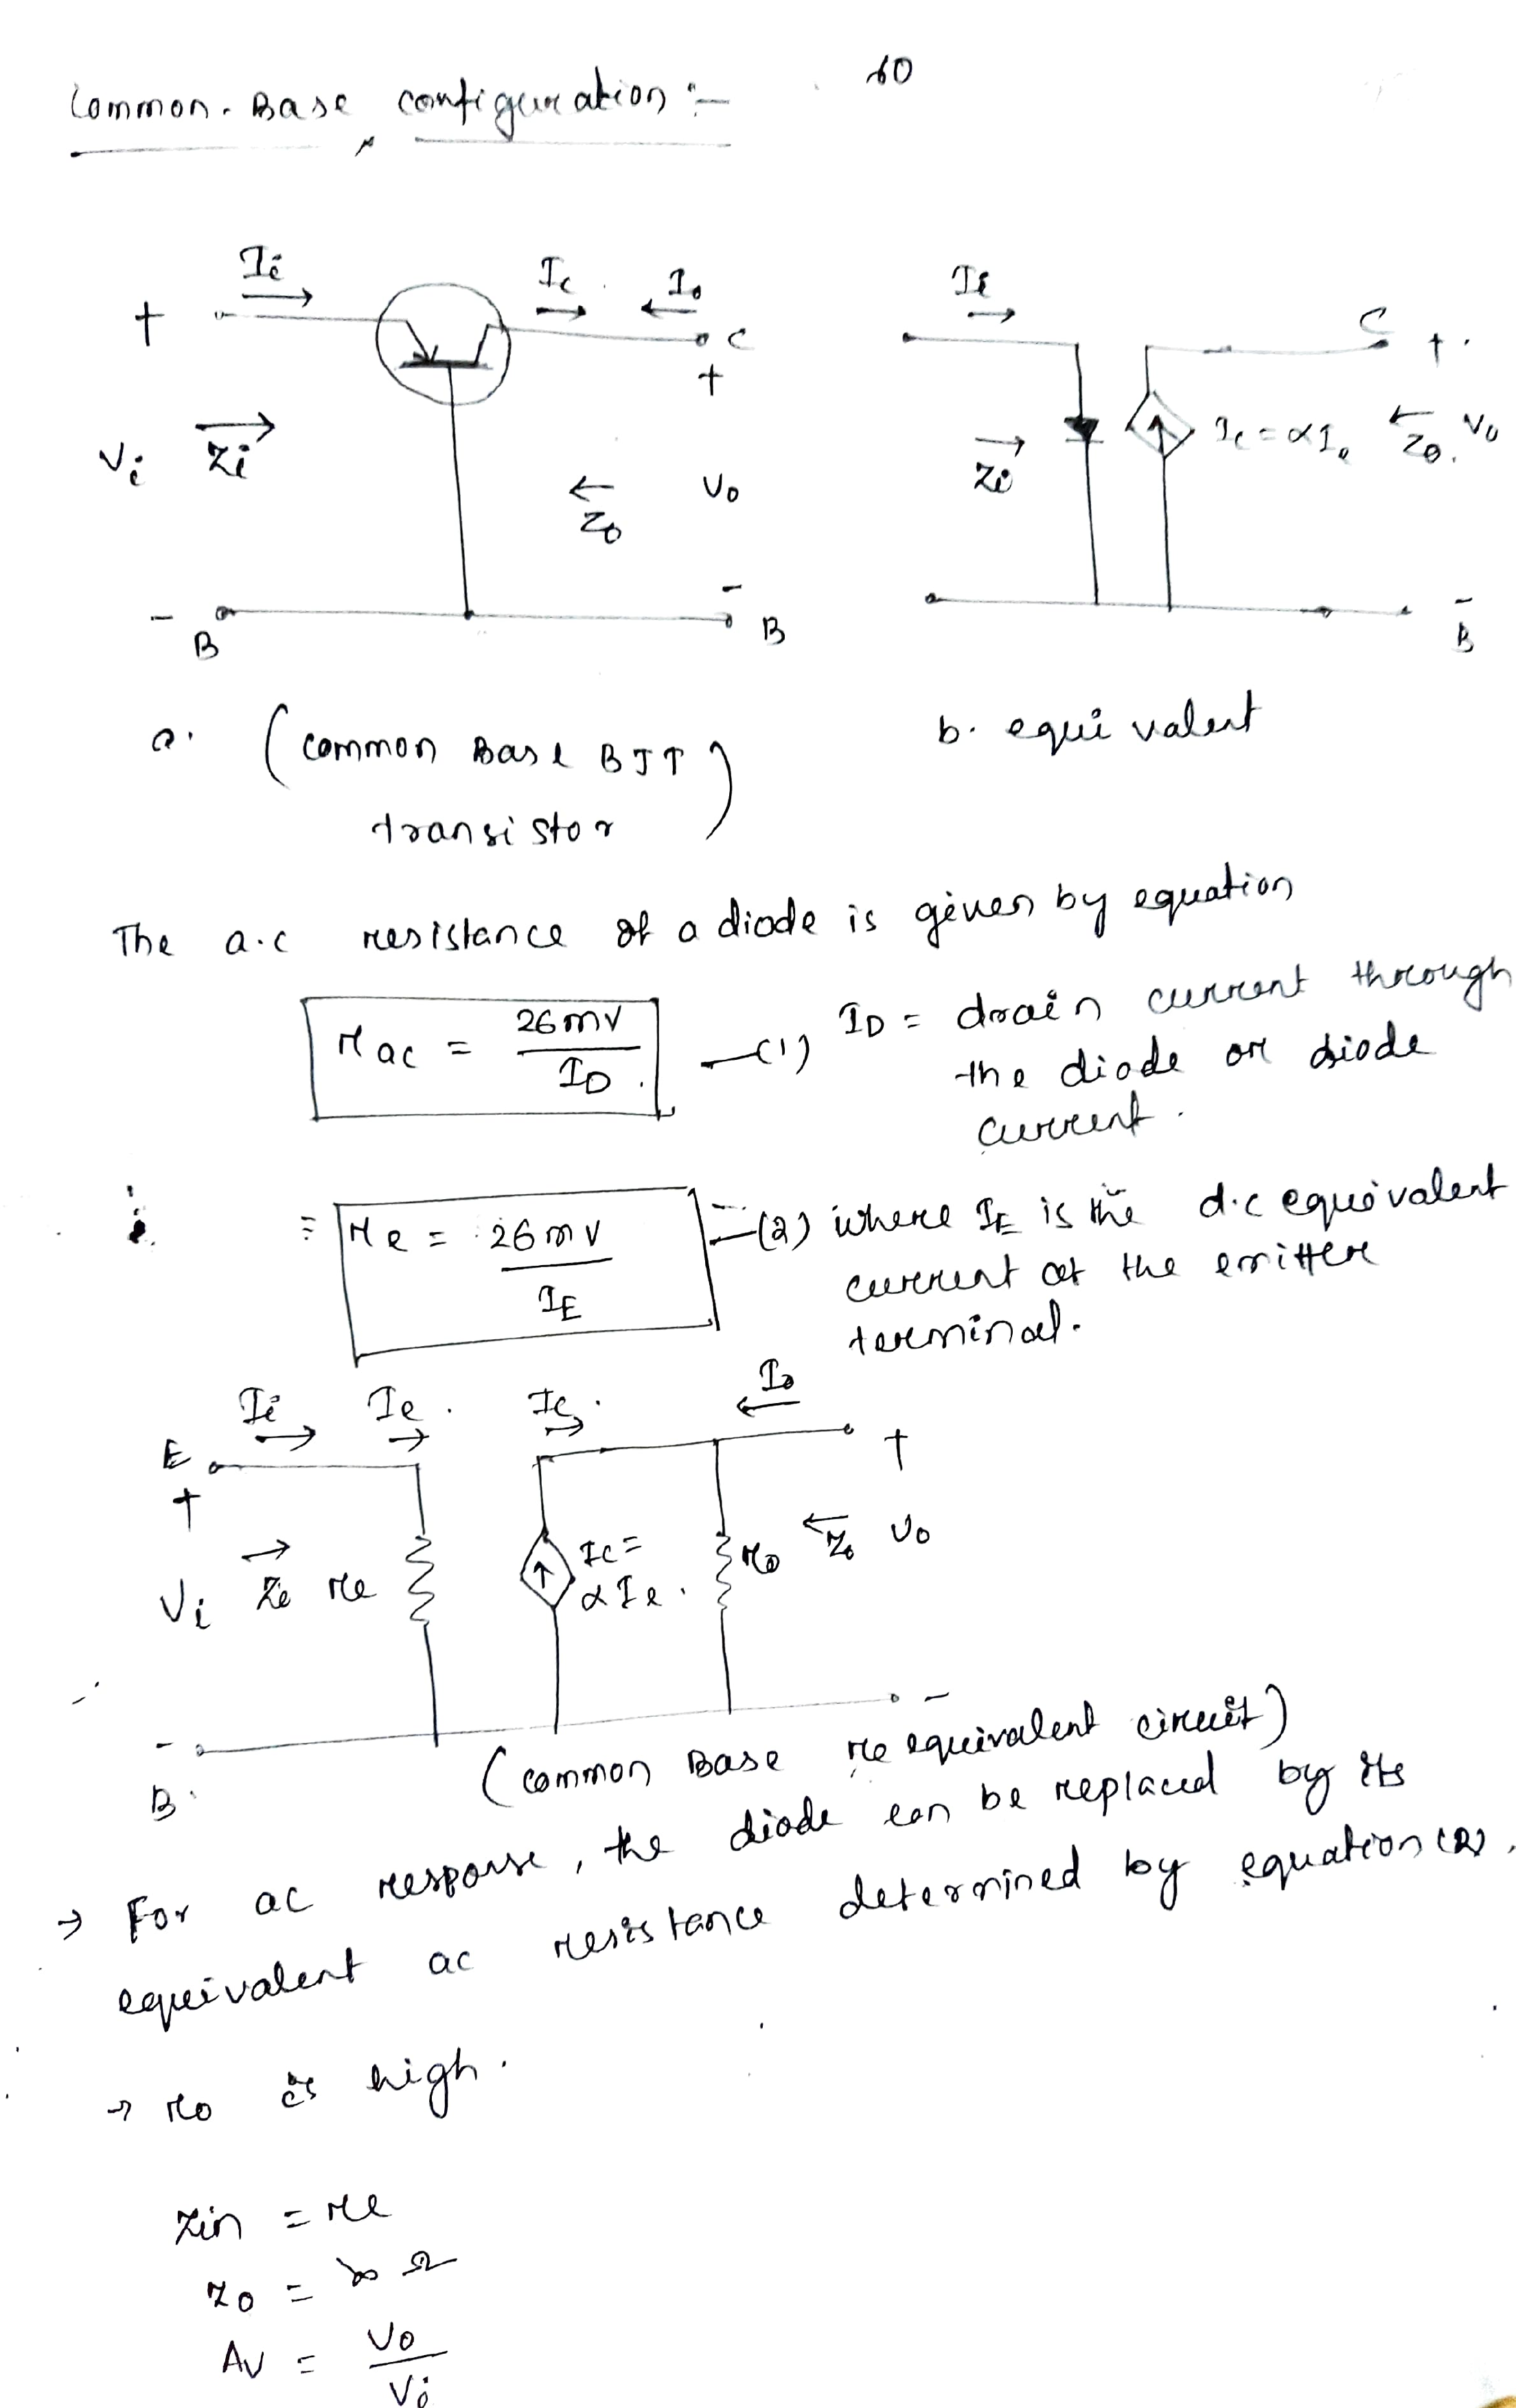 60
Common-Base configuration :-
Ii
Ic
Io
+
C
+
Vi
Zi
Zo
Vo
-
B
-
B
Ii
C
+
Zi
Ic = αIe
Zo
Vo
-
B
a. (common Base BJT
transistor)
b. equivalent
The a.c resistance of a diode is given by equation
rac = 26mV / ID —(1)
ID = drain current through
the diode or diode
current.
= re = 26mV / IE —(2)
where IE is the d.c equivalent
current at the emitter
terminal.
Ii
Ie
Ic
Io
E
+
+
Vi
Zi
re
Ic =
αIe
ro
Zo
Vo
-
-
B
(common Base re equivalent circuit)
→ For ac response, the diode can be replaced by its
equivalent ac resistance determined by equation (2).
→ ro is high.
Zin = re
Zo = ∞ Ω
AV = Vo / Vi